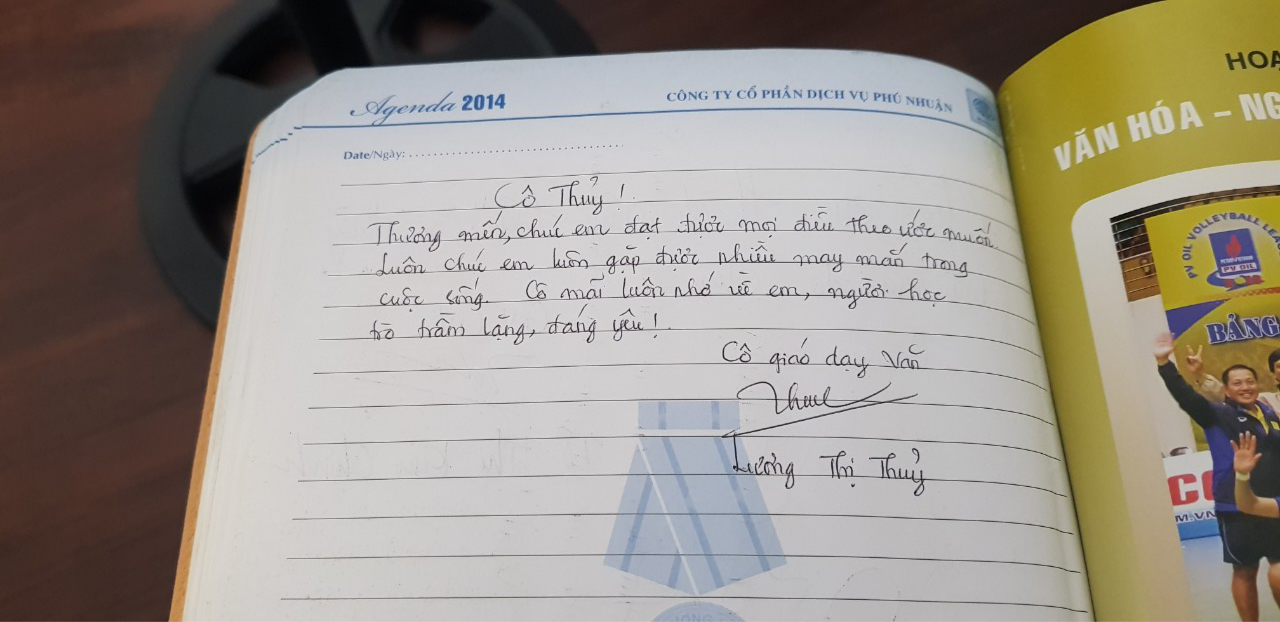 Agenda 2014
CÔNG TY CỔ PHẦN DỊCH VỤ PHÚ NHUẬN
Date/Ngày:
Cô Thuỷ!
Thương mến, chúc em đạt được mọi điều theo ước muốn.
Luôn chúc em luôn gặp được nhiều may mắn trong
cuộc sống. Cô mãi luôn nhớ về em, người học
trò trầm lặng, đáng yêu!
Cô giáo dạy Văn
Lương Thị Thuỷ
HOẠ
VĂN HÓA – NG
PV OIL VOLLEYBALL LEA
PV OIL
BẢNG
CO
M.VN